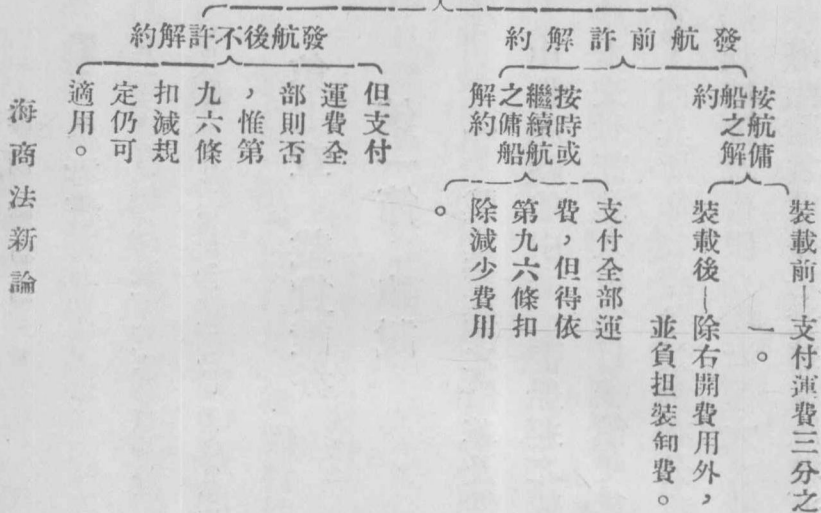 發航前許解約
按航傭
船之解
約
裝載前—支付運費三分之
一。
裝載後—除右開費用外，
並負担裝卸費。
按時或
繼續航
之傭船
解約
支付全部運
費，但得依
第九六條扣
除減少費用
。
發航後不許解約
但支付
運費全
部則否
，惟第
九六條
扣減規
定仍可
適用。
海商法新論